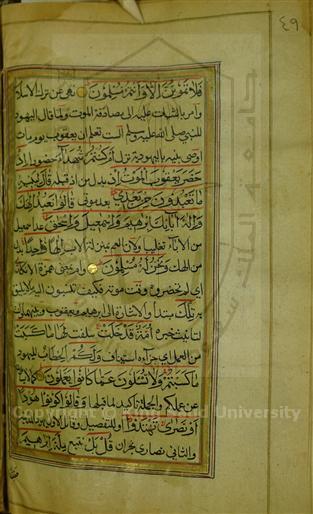 ٤٩
فلا تموتن الا وانتم مسلمون نهى عن ترك الاسلام
وامر بالثبات عليه الى مصادفة الموت ولما قال اليهود
للنبي صلى الله عليه وسلم الست تعلم ان يعقوب يوم مات
اوصى بنيه باليهودية نزل ام كنتم شهداء حضورا اذ
حضر يعقوب الموت اذ بدل من اذ قبله قال لبنيه
ما تعبدون من بعدي بعد موتي قالوا نعبد الهك
واله ابائك ابراهيم واسمعيل واسحق عد اسمعيل
من الاباء تغليب ولان العم بمنزلة الاب الها واحدا بدل
من الهك ونحن له مسلمون وام بمعنى همزة الانكار
اي لم تحضروه وقت موته فكيف تنسبون اليه ما لا يليق
به تلك مبتدا والاشارة الى ابراهيم ويعقوب وبنيهما
لتانيث خبره امة قد خلت سلفت لها ما كسبت
من العمل اي جزاؤه استيناف ولكم الخطاب لليهود
ما كسبتم ولا تسئلون عما كانوا يعملون كما لا
عن عملكم والجملة تاكيد لما قبلها وقالوا كونوا هودا
او نصارى تهتدوا او للتفصيل وقائل الاول يهود المدينة
والثاني نصارى نجران قل بل نتبع ملة ابراهيم
Copyright © King Saud University